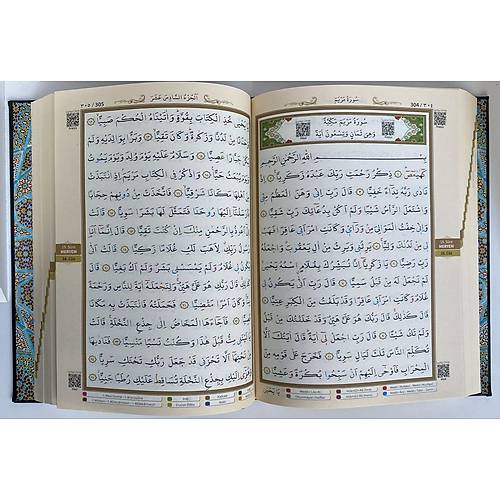 304 / ٣٠٤
سُورَةُ مَرْيَمَ
سُورَةُ مَرْيَمَ مَكِّيَّةٌ
وَهِيَ ثَمَانٍ وَتِسْعُونَ آيَةً
بِسْمِ اللّٰهِ الرَّحْمٰنِ الرَّحِيمِ
كٓهٰيٰعٓصٓ ذِكْرُ رَحْمَتِ رَبِّكَ عَبْدَهُ زَكَرِيَّا اِذْ
نَادٰى رَبَّهُ نِدَاءً خَفِيًّا قَالَ رَبِّ اِنِّى وَهَنَ الْعَظْمُ مِنِّى
وَاشْتَعَلَ الرَّأْسُ شَيْبًا وَلَمْ اَكُنْ بِدُعَائِكَ رَبِّ شَقِيًّا
وَاِنِّى خِفْتُ الْمَوَالِىَ مِنْ وَرَاءِى وَكَانَتِ امْرَاَتِى عَاقِرًا فَهَبْ
لِى مِنْ لَدُنْكَ وَلِيًّا يَرِثُنِى وَيَرِثُ مِنْ اٰلِ يَعْقُوبَ وَاجْعَلْهُ
رَبِّ رَضِيًّا يَا زَكَرِيَّا اِنَّا نُبَشِّرُكَ بِغُلَامٍ اسْمُهُ يَحْيٰى
لَمْ نَجْعَلْ لَهُ مِنْ قَبْلُ سَمِيًّا قَالَ رَبِّ اَنّٰى يَكُونُ لِى
غُلَامٌ وَكَانَتِ امْرَاَتِى عَاقِرًا وَقَدْ بَلَغْتُ مِنَ الْكِبَرِ عِتِيًّا
قَالَ كَذٰلِكَ قَالَ رَبُّكَ هُوَ عَلَىَّ هَيِّنٌ وَقَدْ خَلَقْتُكَ مِنْ قَبْلُ
وَلَمْ تَكُ شَيْئًا قَالَ رَبِّ اجْعَلْ لِى اٰيَةً قَالَ اٰيَتُكَ اَلَّا
تُكَلِّمَ النَّاسَ ثَلٰثَ لَيَالٍ سَوِيًّا فَخَرَجَ عَلٰى قَوْمِهِ مِنَ
الْمِحْرَابِ فَاَوْحٰى اِلَيْهِمْ اَنْ سَبِّحُوا بُكْرَةً وَعَشِيًّا
19. Sûre
MERYEM
16. Cüz
305 / ٣٠٥
اَلْجُزْءُ السَّادِسَ عَشَرَ
يَا يَحْيٰى خُذِ الْكِتَابَ بِقُوَّةٍ وَاٰتَيْنَاهُ الْحُكْمَ صَبِيًّا
وَحَنَانًا مِنْ لَدُنَّا وَزَكٰوةً وَكَانَ تَقِيًّا وَبَرًّا بِوَالِدَيْهِ وَلَمْ
يَكُنْ جَبَّارًا عَصِيًّا وَسَلَامٌ عَلَيْهِ يَوْمَ وُلِدَ وَيَوْمَ يَمُوتُ
وَيَوْمَ يُبْعَثُ حَيًّا وَاذْكُرْ فِى الْكِتَابِ مَرْيَمَ اِذِ انْتَبَذَتْ
مِنْ اَهْلِهَا مَكَانًا شَرْقِيًّا فَاتَّخَذَتْ مِنْ دُونِهِمْ حِجَابًا
فَاَرْسَلْنَا اِلَيْهَا رُوحَنَا فَتَمَثَّلَ لَهَا بَشَرًا سَوِيًّا قَالَتْ
اِنِّى اَعُوذُ بِالرَّحْمٰنِ مِنْكَ اِنْ كُنْتَ تَقِيًّا قَالَ اِنَّمَا
اَنَا رَسُولُ رَبِّكِ لِاَهَبَ لَكِ غُلَامًا زَكِيًّا قَالَتْ اَنّٰى يَكُونُ
لِى غُلَامٌ وَلَمْ يَمْسَسْنِى بَشَرٌ وَلَمْ اَكُ بَغِيًّا قَالَ
كَذٰلِكِ قَالَ رَبُّكِ هُوَ عَلَىَّ هَيِّنٌ وَلِنَجْعَلَهُ اٰيَةً لِلنَّاسِ وَرَحْمَةً
مِنَّا وَكَانَ اَمْرًا مَقْضِيًّا فَحَمَلَتْهُ فَانْتَبَذَتْ بِهِ مَكَانًا
قَصِيًّا فَاَجَاءَهَا الْمَخَاضُ اِلٰى جِذْعِ النَّخْلَةِ قَالَتْ
يَا لَيْتَنِى مِتُّ قَبْلَ هٰذَا وَكُنْتُ نَسْيًا مَنْسِيًّا فَنَادٰيهَا
مِنْ تَحْتِهَا اَلَّا تَحْزَنِى قَدْ جَعَلَ رَبُّكِ تَحْتَكِ سَرِيًّا
وَهُزِّى اِلَيْكِ بِجِذْعِ النَّخْلَةِ تُسَاقِطْ عَلَيْكِ رُطَبًا جَنِيًّا
19. Sûre
MERYEM
16. Cüz